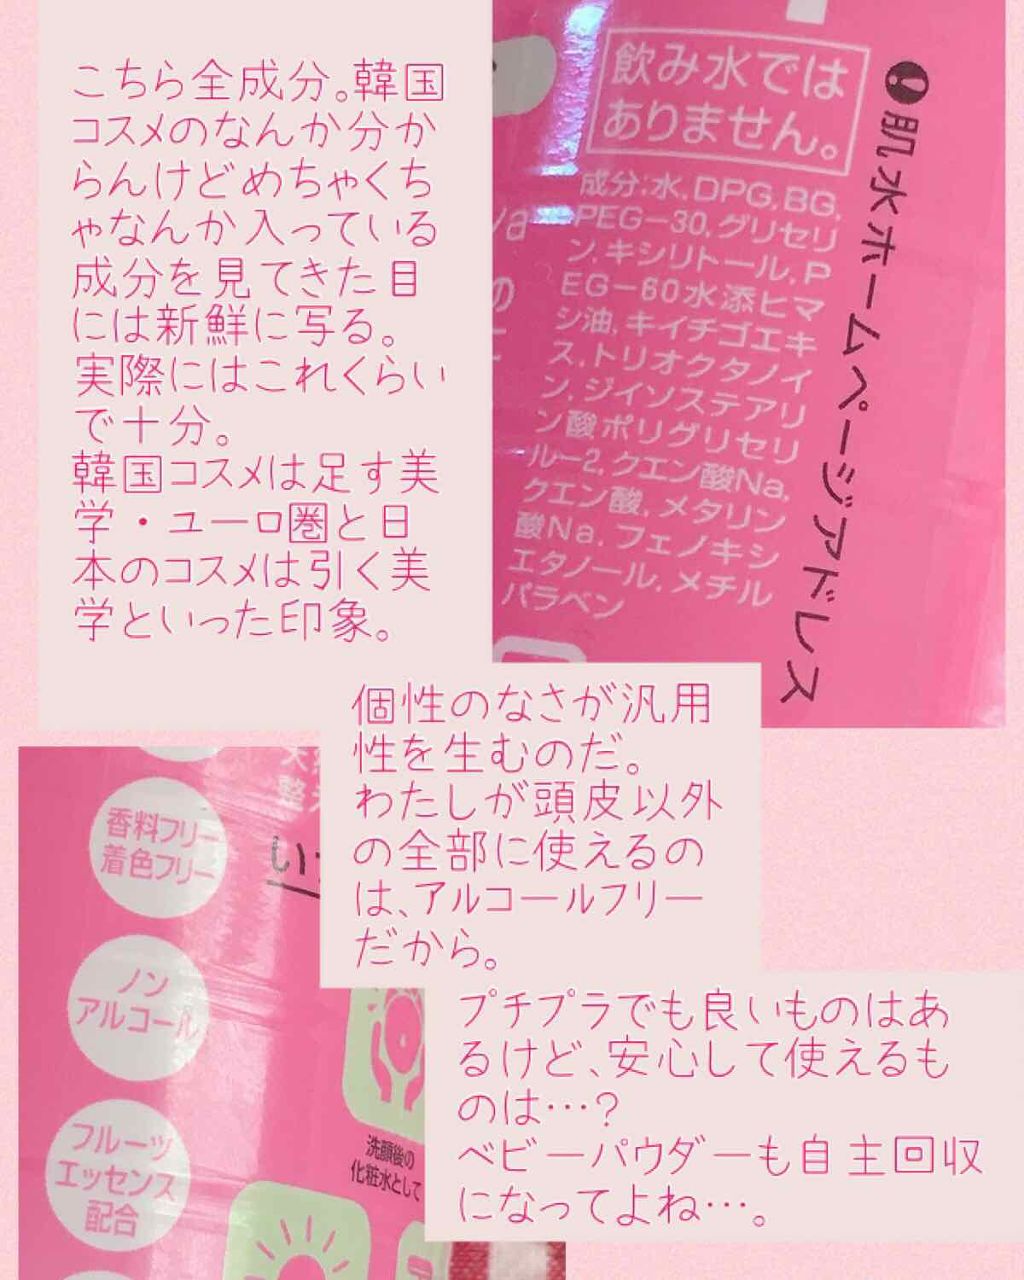 こちら全成分。韓国
コスメのなんか分か
らんけどめちゃくち
ゃなんか入っている
成分を見てきた目
には新鮮に写る。
実際にはこれくらい
で十分。
韓国コスメは足す美
学・ユーロ圏と日
本のコスメは引く美
学といった印象。
飲み水では
ありません。
成分:水,DPG,BG,
PEG-30,グリセリ
ン,キシリトール,P
EG-60水添ヒマ
シ油,キイチゴエキ
ス,トリオクタノイ
ン,ジイソステアリ
ン酸ポリグリセリ
ル-2,クエン酸Na,
クエン酸,メタリン
酸Na,フェノキシ
エタノール,メチル
パラベン
肌水ホームページアドレス
個性のなさが汎用
性を生むのだ。
わたしが頭皮以外
の全部に使えるの
は、アルコールフリー
だから。
香料フリー
着色フリー
ノン
アルコール
フルーツ
エッセンス
配合
洗顔後の
化粧水として
プチプラでも良いものはあ
るけど、安心して使えるも
のは…?
ベビーパウダーも自主回収
になってよね…。